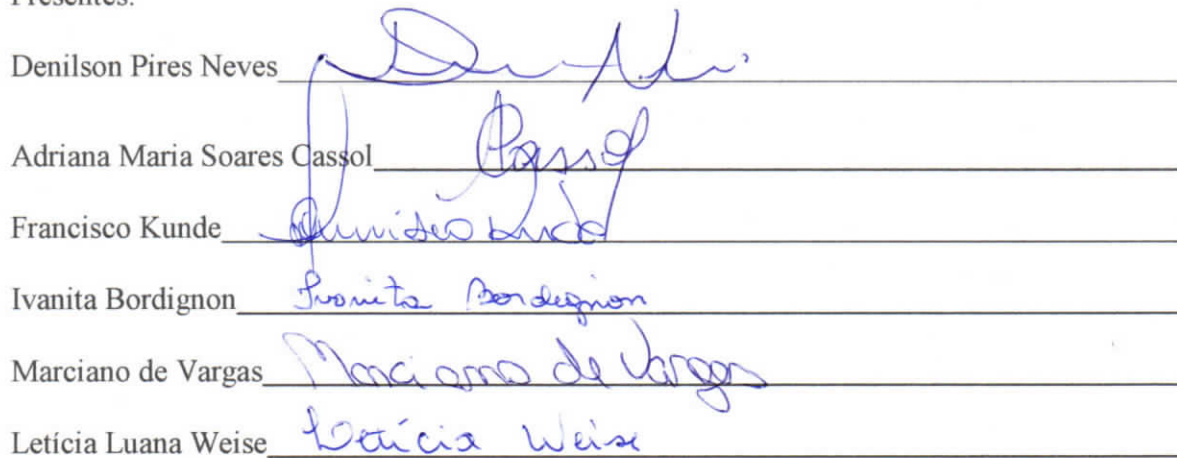 Presentes:
Denilson Pires Neves
Adriana Maria Soares Cassol Cassol
Francisco Kunde
Ivanita Bordignon Ivanita Bordignon
Marciano de Vargas Marciano de Vargas
Letícia Luana Weise Letícia Weise